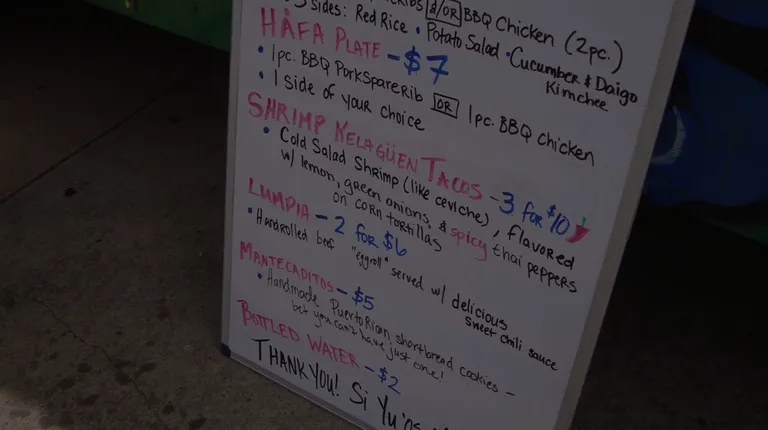 Ribs &/OR BBQ Chicken (2pc.)
Sides: Red Rice • Potato Salad • Cucumber & Daigo Kimchee
HÅFA PLATE - $7
• 1pc. BBQ Pork Spare Rib OR 1pc. BBQ Chicken
• 1 Side of Your Choice
SHRIMP KELAGÜEN TACOS - 3 for $10
• Cold Salad Shrimp (like ceviche), flavored
w/ lemon, green onions, & spicy thai peppers
on corn tortillas
LUMPIA - 2 for $6
• Handrolled beef "eggroll" served w/ delicious
sweet chili sauce
MANTECADITOS - $5
• Handmade Puerto Rican shortbread cookies -
bet you can't have just one!
BOTTLED WATER - $2
THANK YOU! Si Yu'os